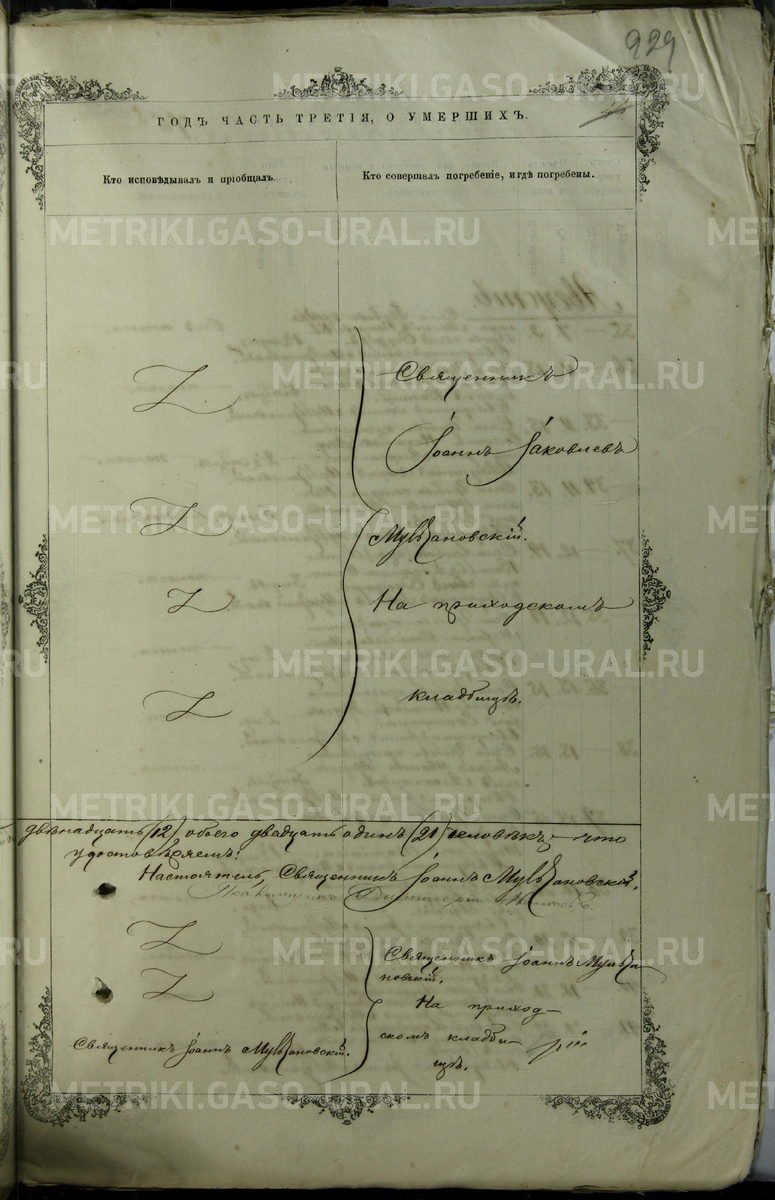 929
ГОДЪ ЧАСТЬ ТРЕТІЯ, О УМЕРШИХЪ.
Кто исповѣдывалъ и пріобщалъ.
Кто совершалъ погребеніе, и гдѣ погребены.
Священникъ
Іоаннъ Іаковлевъ
Мультановскій.
На приходскомъ
кладбищѣ.
двѣнадцать (12) обоего двадцать одинъ (21) человѣкъ, – что
удостовѣряемъ:
Настоятель, Священникъ Іоаннъ Мультановскій.
Псаломщикъ
Священникъ Іоаннъ Мульта-
новскій.
На приход-
скомъ кладби-
щѣ.
Священникъ Іоаннъ Мультановскій.
METRIKI.GASO-URAL.RU